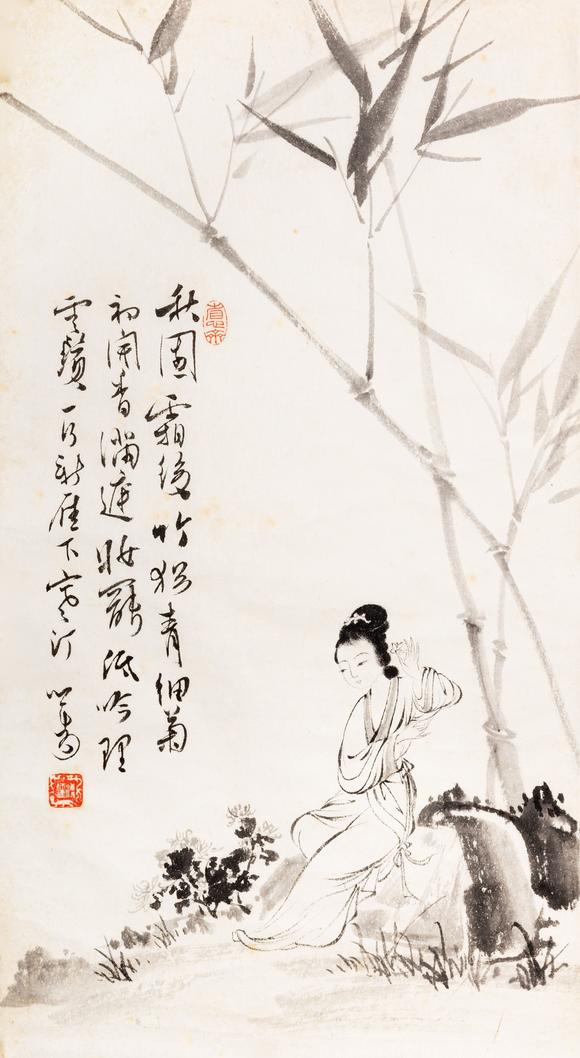 秋園霜後竹猶青細菊
初開香滿庭妝罷低吟理
雲鬢一行新雁下寒汀 心畬